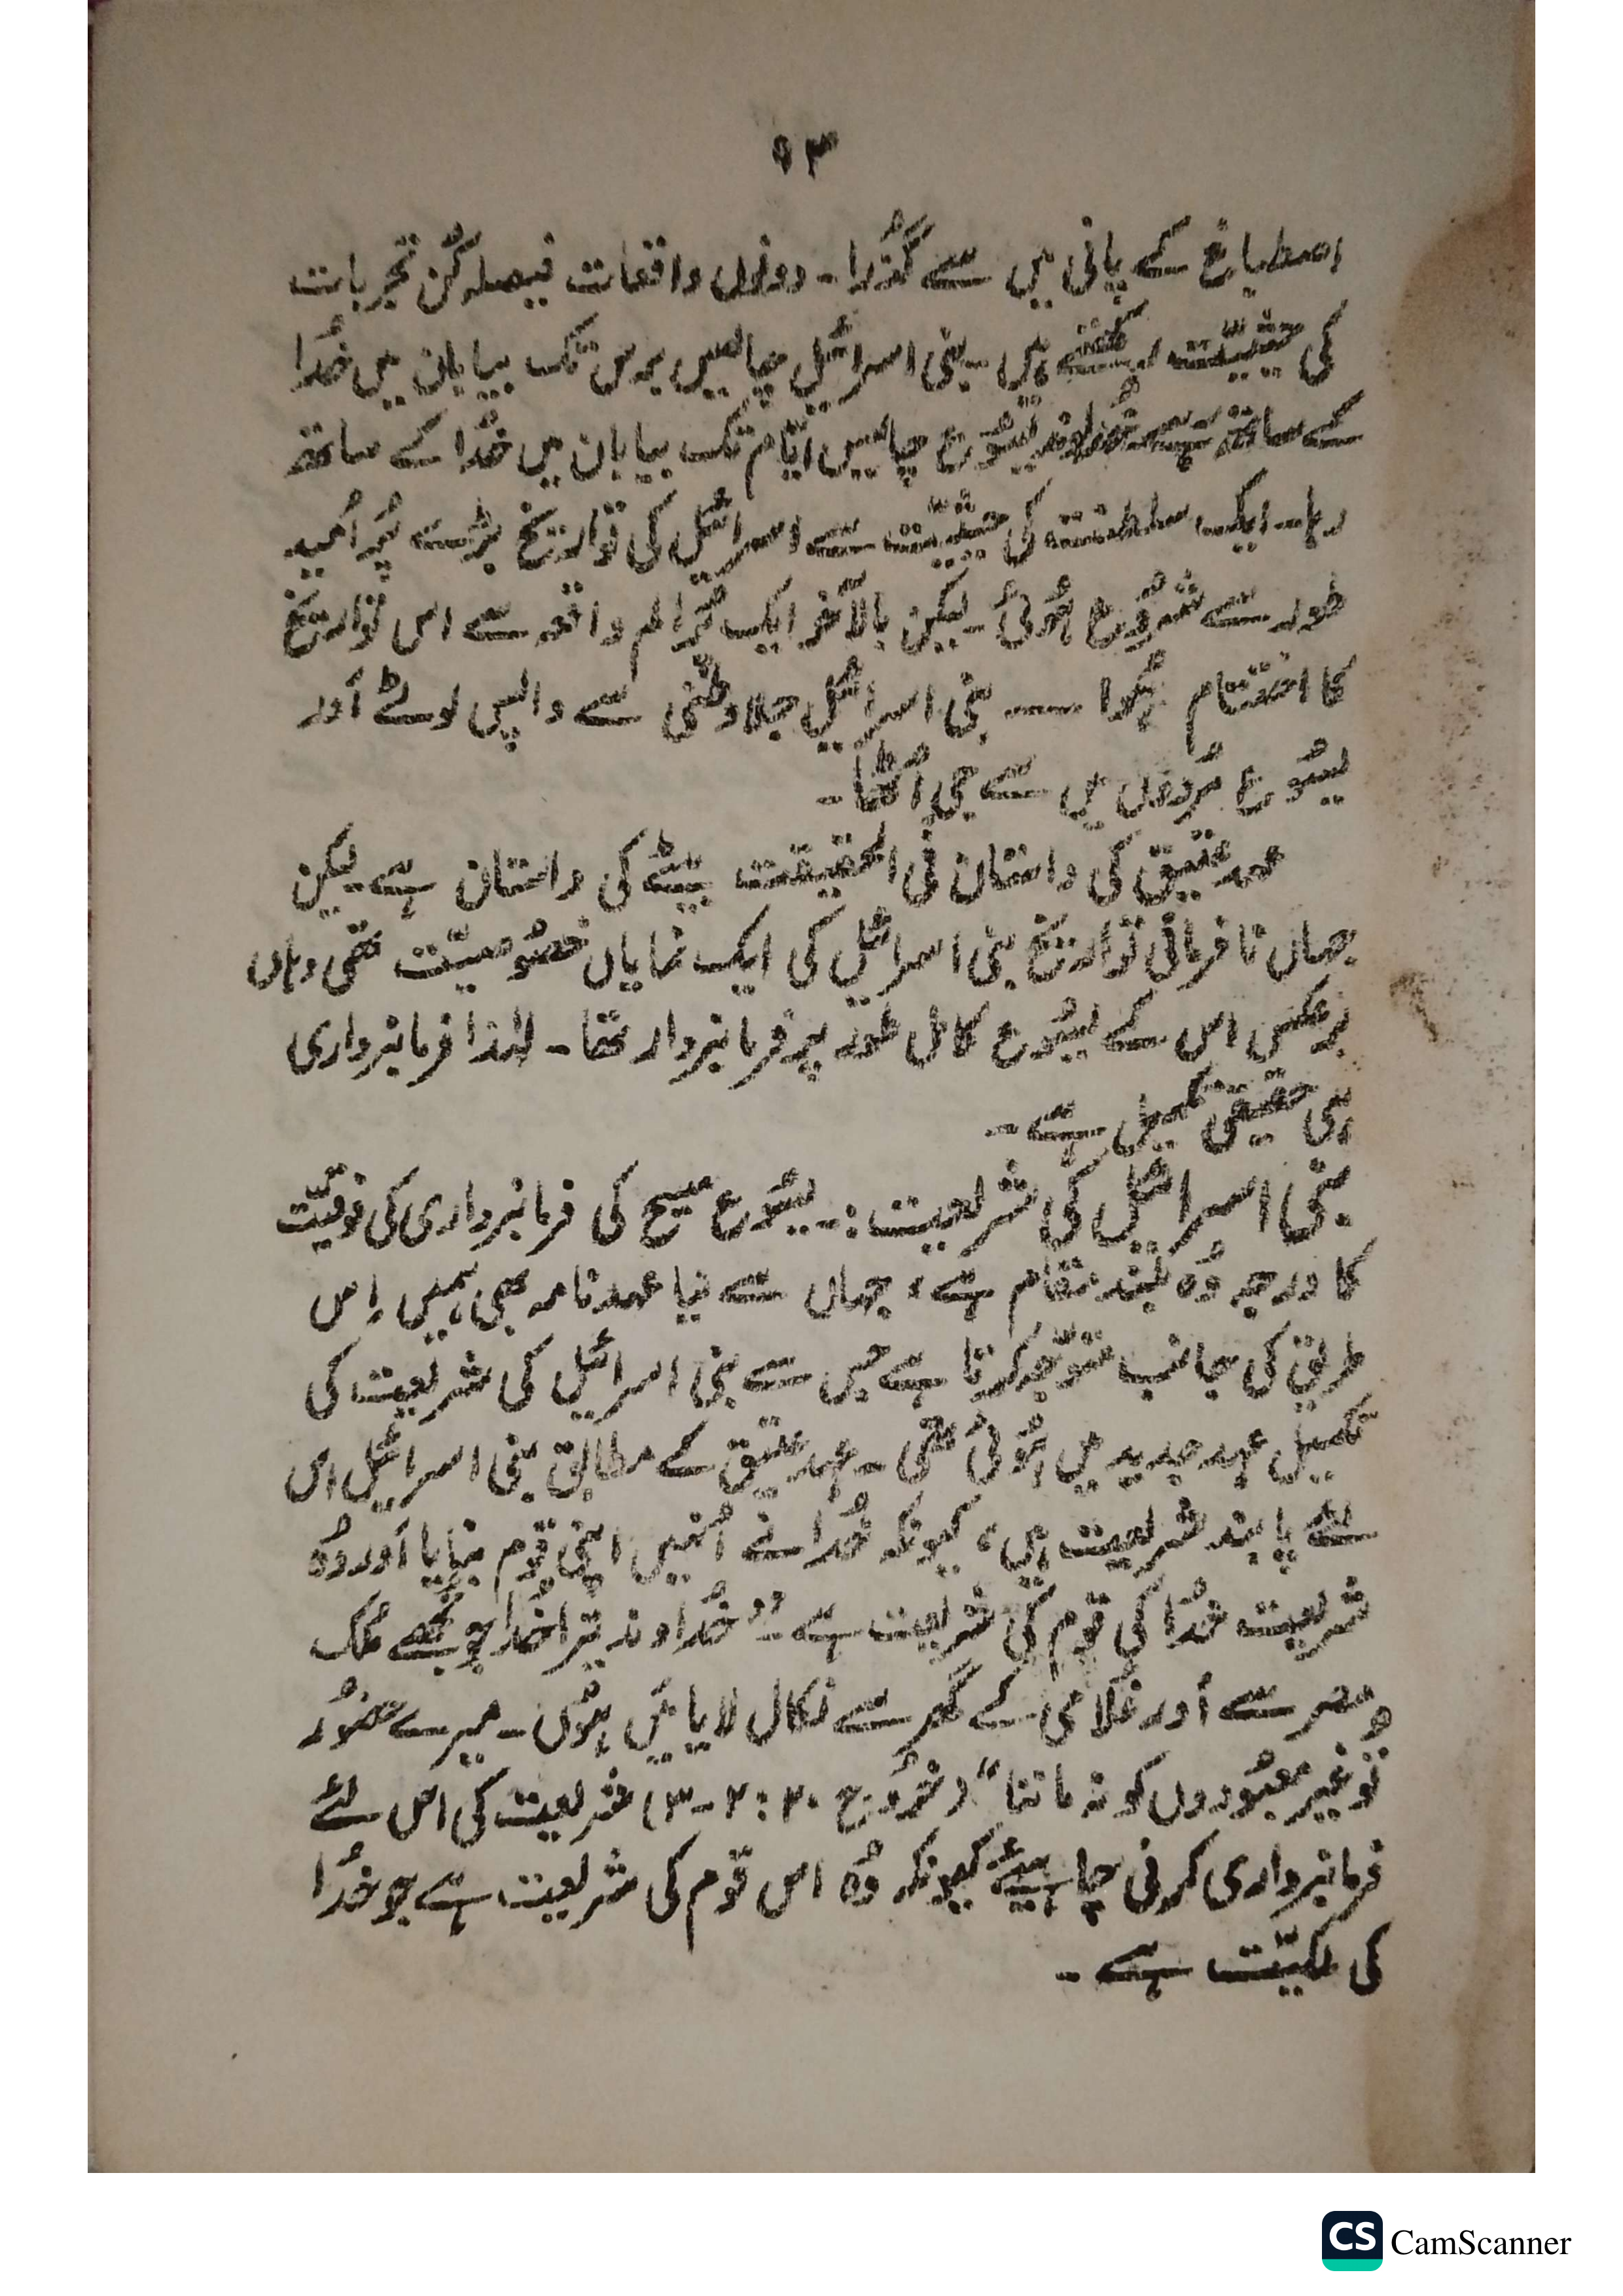 ۹۳
اصطباغ کے پانی میں سے گُذرا۔ دونوں واقعات فیصلہ کُن تجربات
کی حیثیّت رکھتے ہیں۔ بنی اسرائیل چالیس برس تک بیابان میں خُدا
کے ساتھ رہے خُداوند یسُوع چالیس ایّام تک بیابان میں خُدا کے ساتھ
رہا۔ ایک سلطنت کی حیثیّت سے اسرائیل کی تواریخ بڑے پُر اُمید
طور سے شرُوع ہُوئی۔ لیکن بالآخر ایک پُر الم واقعہ سے اس تواریخ
کا اختتام ہُوا ۔۔ بنی اسرائیل جلاوطنی سے واپس لوٹے اَور
یسُوع مُردوں میں سے جی اُٹھا۔
عہد عتیق کی داستان فی الحقیقت بیٹے کی داستان ہے۔ لیکن
جہاں نافرمانی تواریخ بنی اسرائیل کی ایک نمایاں خصُوصیّت تھی وہاں
برعکس اس کے یسُوع کامل طور پر فرمانبردار تھا۔ لہٰذا فرمانبرداری
ہی حقیقی تکمیل ہے۔
بنی اسرائیل کی شریعت :۔ یسُوع مسیح کی فرمانبرداری کی فوقیّت
کا درجہ وُہ بلند مقام ہے، جہاں سے نیا عہدنامہ بھی ہمیں اِس
طریق کی جانب متوّجہ کرتا ہے جس سے بنی اسرائیل کی شریعت کی
تکمیل عہد جدید میں ہُوئی تھی۔ عہد عتیق کے مطابق بنی اسرائیل اس
لئے پابند شریعت ہیں، کیونکہ خُدا نے اُنہیں اپنی قوم بنایا اَور وُہ
شریعت خُدا کی قوم کی شریعت ہے۔ ”خُداوند تیرا خُدا جو تجھے مُلک
مصر سے اَور غُلامی کے گھر سے نکال لایا مَیں ہُوں۔ میرے حضُور
تُو غیر معبُودوں کو نہ ماننا“ (خرُوج ۲۰: ۲-۳) شریعت کی اس لئے
فرمانبرداری کرنی چاہیئے کیونکہ وُہ اس قوم کی شریعت ہے جو خُدا
کی ملکیّت ہے۔
CS CamScanner